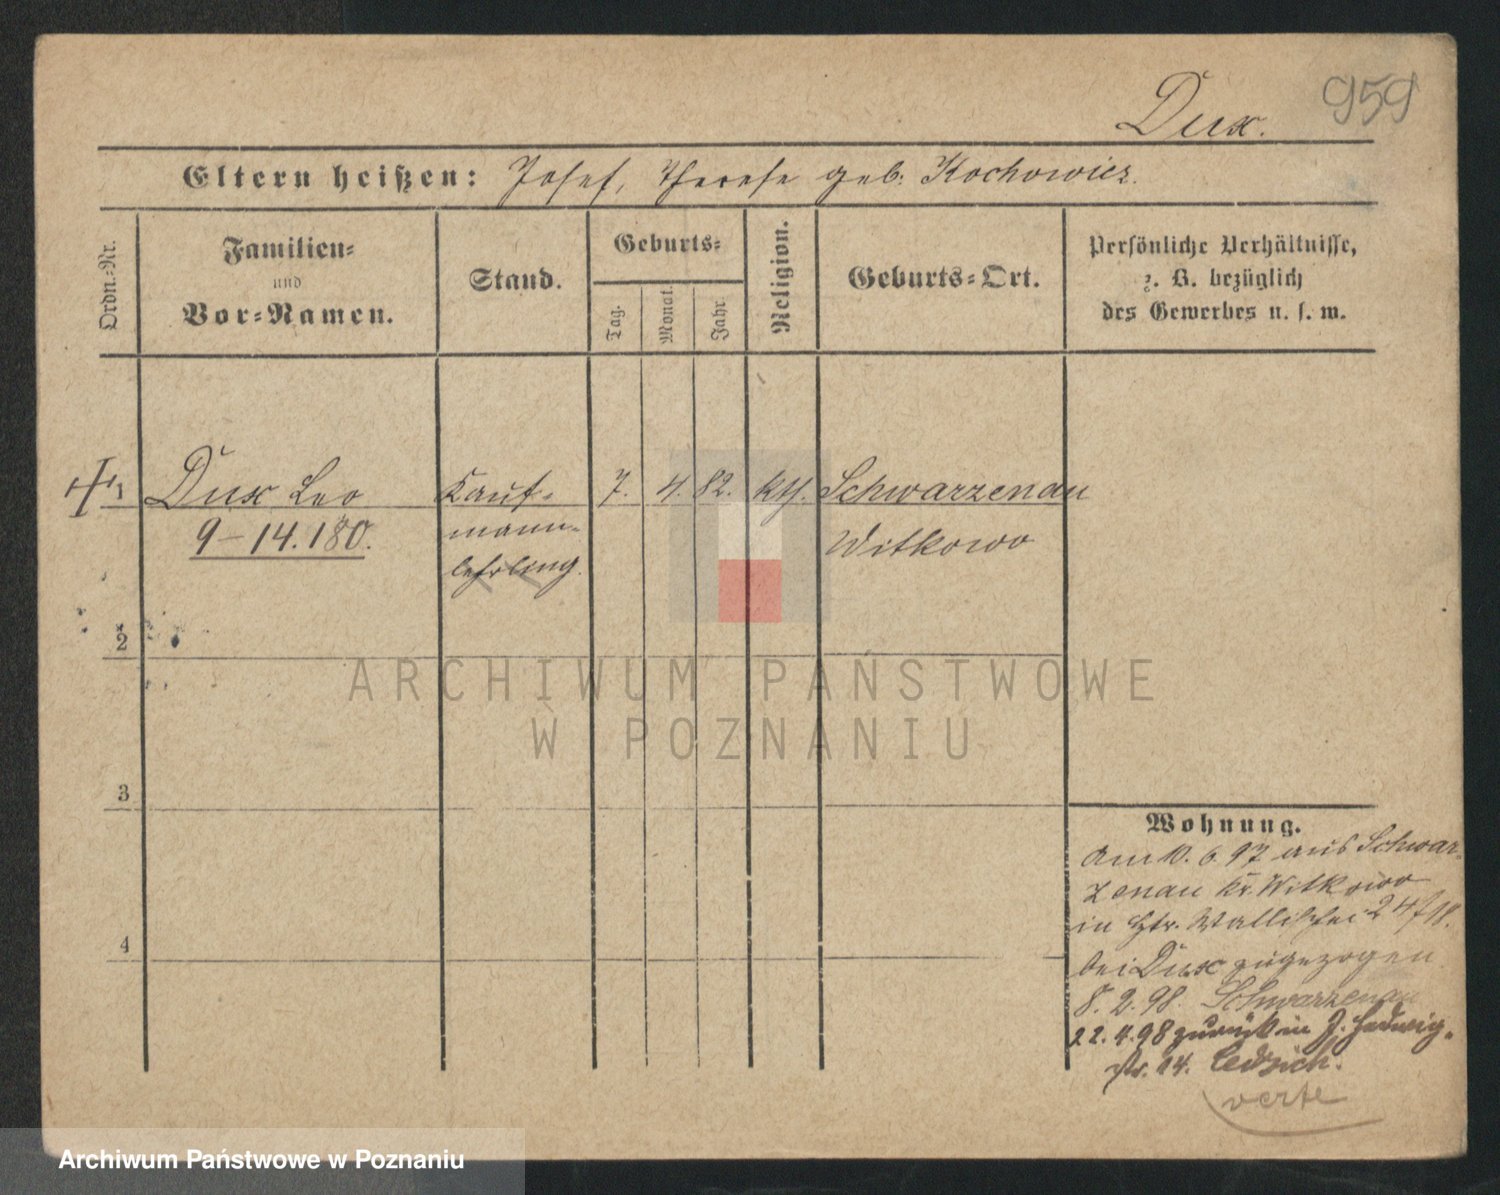 959
Dux.
Eltern heißen: Josef, Therese geb. Kochowicz.
Ordn.-Nr.
Familien-
und
Vor-Namen.
Stand.
Geburts-
Tag.
Monat.
Jahr.
Religion.
Geburts-Ort.
Persönliche Verhältnisse,
z. B. bezüglich
des Gewerbes u. s. w.
1 Dux Leo Kauf- 7. 4. 82. kth. Schwarzenau
9-14.180. mann- Witkowo
lehrling.
2
3
4
Wohnung.
Am 10. 6. 97 aus Schwar-
zenau Kr. Witkowo
in Htr. Wallischei 24/
bei Dux zugezogen
8. 2. 98. Schwarzenau
22. 4. 98 zurück in J. Hedwig-
str. 14.
verte
ARCHIWUM PAŃSTWOWE
W POZNANIU
Archiwum Państwowe w Poznaniu